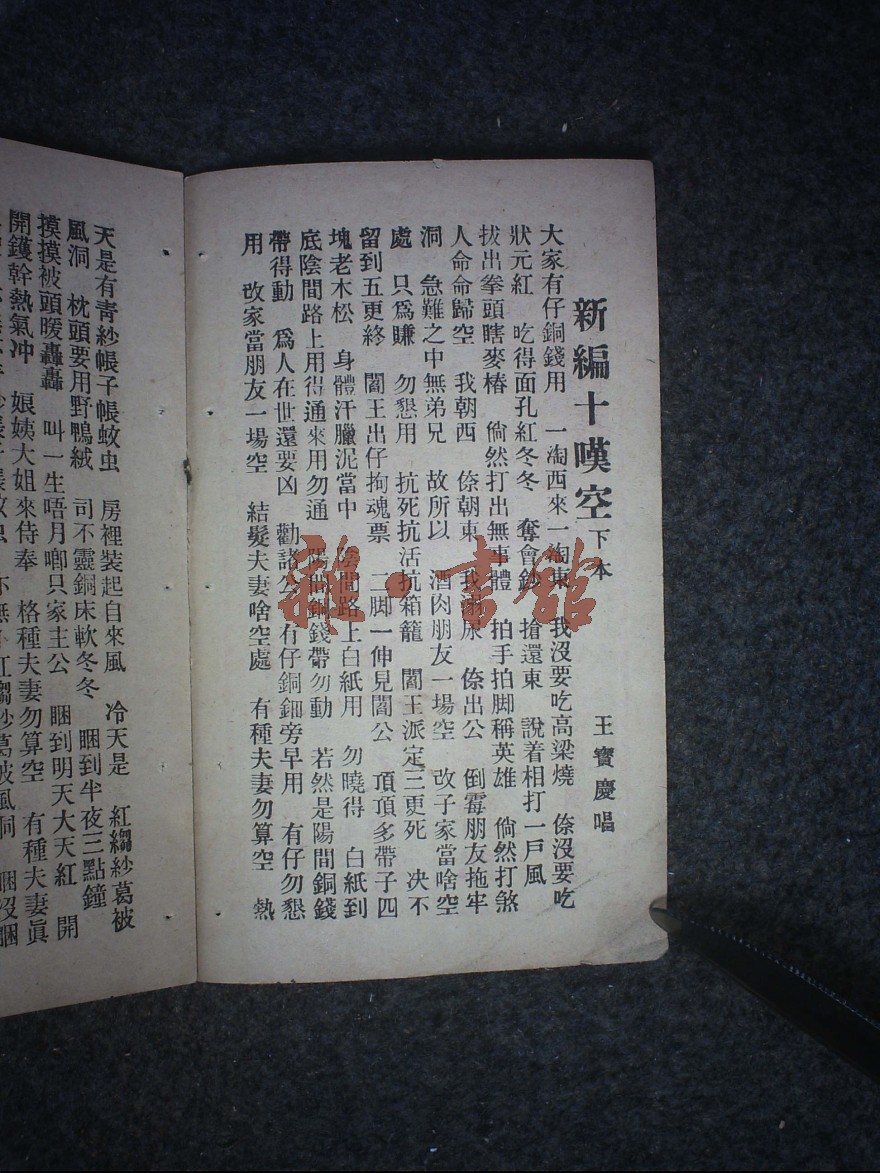 新編十嘆空下本
王寶慶唱
大家有仔銅錢用　一淘西來一淘東　我沒要吃高梁燒　倷沒要吃
狀元紅　吃得面孔紅冬冬　奪會鈔　搶還東　說着相打一戶風
拔出拳頭瞎麥椿　倘然打出無事體　拍手拍脚稱英雄　倘然打煞
人命命歸空　我朝西　倷朝東　我溺尿　倷出公　倒霉朋友拖牢
洞　急難之中無弟兄　故所以　酒肉朋友一場空　改子家當啥空
處　只爲賺　勿懇用　抗死抗活抗箱籠　閻王派定三更死　决不
留到五更終　閻王出仔拘魂票　二脚一伸見閻公　頂頂多帶子四
塊老木松　身體汗臘泥當中　陰間路上白紙用　勿曉得　白紙到
底陰間路上用得通來用勿通　陽間銅錢帶勿動　若然是陽間銅錢
帶得動　爲人在世還要凶　勸諸公　有仔銅鈿旁早用　有仔勿懇
用　改家當朋友一場空　結髮夫妻啥空處　有種夫妻勿算空　熱
天是有靑紗帳子帳蚊虫　房裡裝起自來風　冷天是　紅縐紗葛被
風洞　枕頭要用野鴨絨　司不靈銅床軟冬冬　睏到半夜三點鐘
摸摸被頭暖轟轟　叫一生唔月啣只家主公　睏到明天大天紅　開
開鑊幹熱氣冲　娘姨大姐來侍奉　格種夫妻勿算空　有種夫妻眞
雅·書館